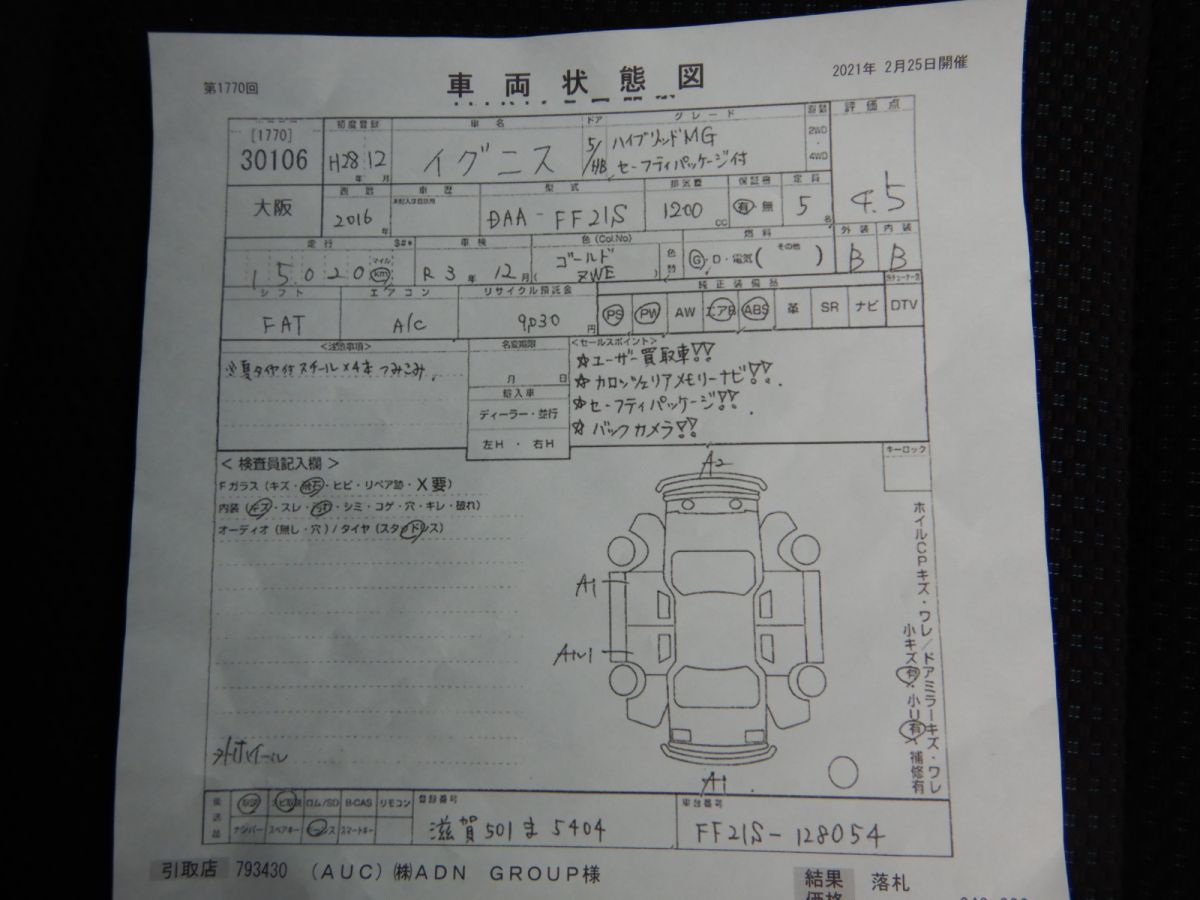 第1770回
車両状態図
2021年 2月25日開催
[1770]
30106
初度登録
H28 12
年 月
車名
イグニス
ドア
5/HB
グレード
ハイブリッドMG
セーフティパッケージ付
駆動
2WD
・
4WD
評価点
4.5
大阪
西暦
2016
年
車歴
未記入は自家用
型式
DAA-FF21S
排気量
1200
cc
保証書
有・無
定員
5
名
走行
$#*
15,020
マイル
km
車検
R3年 12月
色(Col.No)
ゴールド
( ZWE )
色替
燃料
G・D・電気( その他 )
外装
B
内装
B
シフト
FAT
エアコン
A/C
リサイクル預託金
9,030
円
純正装備品
PS PW AW エアB ABS 革 SR ナビ
DTV
<注意事項>
※夏タイヤ付スチール×4本つみこみ.
名変期限
月 日
輸入車
ディーラー・並行
左H ・ 右H
<セールスポイント>
☆ユーザー買取車!!
☆カロッツェリアメモリーナビ!!
☆セーフティパッケージ!!
☆バックカメラ!!
<検査員記入欄>
Fガラス(キズ・飛石・ヒビ・リペア跡・X要)
内装(キズ・スレ・汚れ・シミ・コゲ・穴・キレ・破れ)
オーディオ(無し・穴)/タイヤ(スタッドレス)
キーロック
A2
A1
A1U1
A1
ホイルCPキズ・ワレ/ドアミラーキズ・ワレ
小キズ有・小U有・補修有
外ホイール
後送品
取説
ナビ取説
ロム/SD
B-CAS
リモコン
ナンバー
スペアキー
スマートキー
登録番号
滋賀 501 ま 5404
車台番号
FF21S-128054
引取店 793430 (AUC)㈱ADN GROUP様
結果 落札
価格